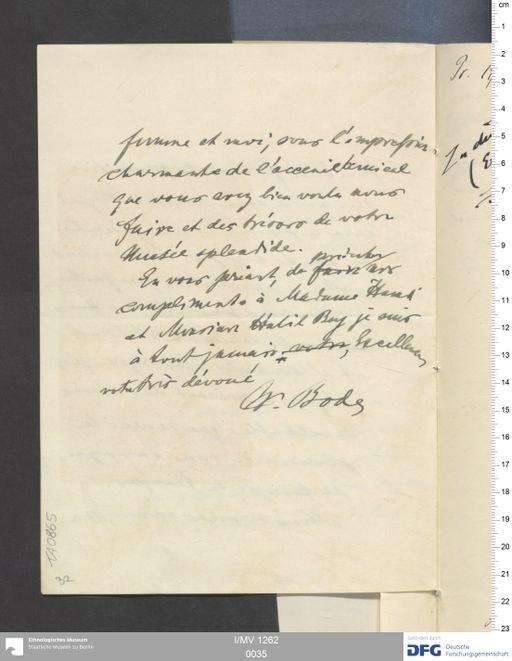 femme et moi, sous l'impression
charmante de l'acceuil amical
que vous avez bien voulu nous
faire et des trésors de votre
Musée splendide.
présenter
En vous priant, de faire nos
compliments à Madame Hamdi
et Monsieur Halil Bey je suis
à tout jamais, votre, Excellence,
votre très dévoué
W. Bode
TA0865
32
cm
1
2
3
4
5
6
7
8
9
10
11
12
13
14
15
16
17
18
19
20
21
22
23
Ethnologisches Museum
Staatliche Museen zu Berlin
I/MV 1262
0035
Gefördert durch
DFG Deutsche
Forschungsgemeinschaft